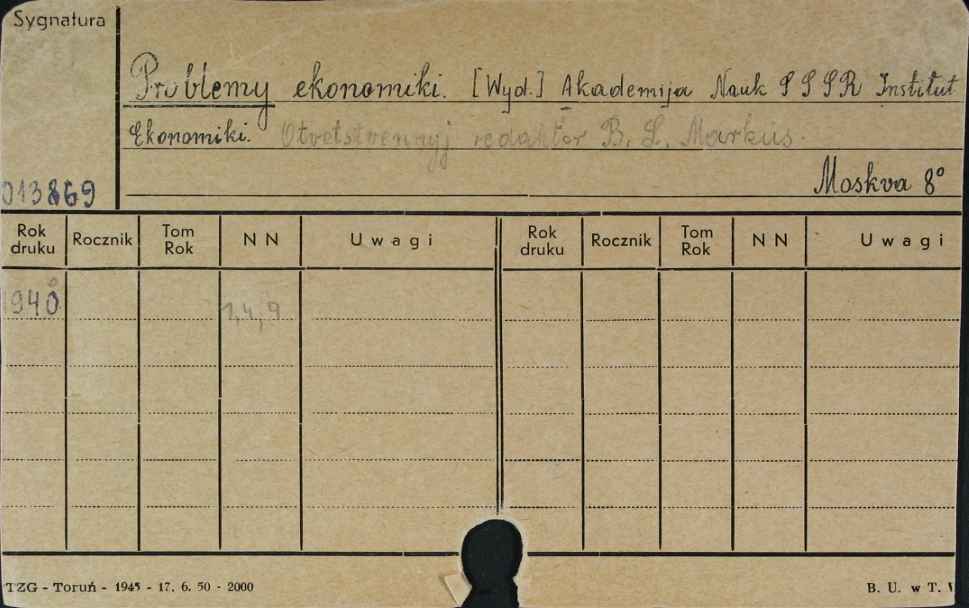 Sygnatura
Problemy ekonomiki. [Wyd.] Akademija Nauk SSSR Institut
Ekonomiki. Otvetstvennyj redaktor B. L. Markus.
Moskva 8°
013869
Rok druku Rocznik Tom Rok N N Uwagi Rok druku Rocznik Tom Rok N N Uwagi
1940 1, 4, 9
TZG - Toruń - 1945 - 17. 6. 50 - 2000 B. U. w T.